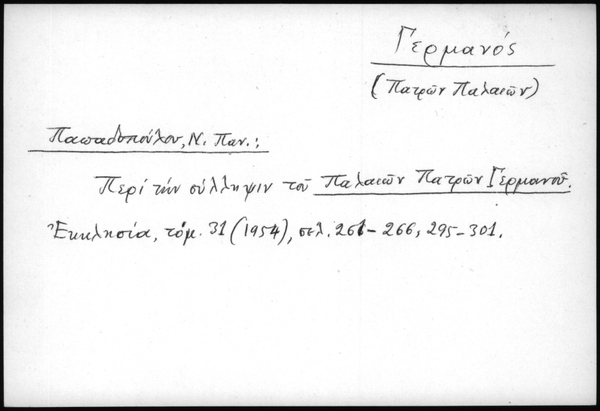 Γερμανός
(Πατρῶν Παλαιῶν)
Παπαδοπούλου, Ν. Παν.:
Περί τήν σύλληψιν τοῦ Παλαιῶν Πατρῶν Γερμανοῦ.
Ἐκκλησία, τόμ. 31 (1954), σελ. 261-266, 295-301.